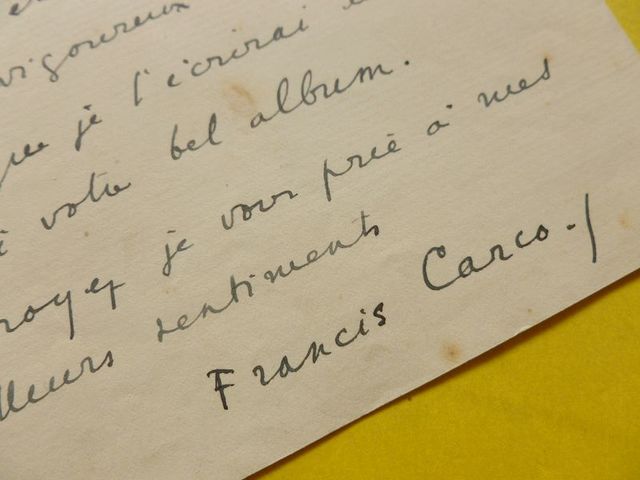 vigoureux
que je l'écrirai
votre bel album.
royez je vous prie à mes
lleurs sentiments
Francis Carco